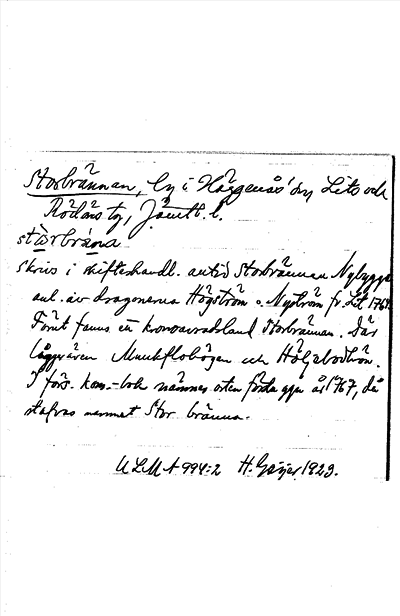 Storbrännan, by i Häggenås' sn, Lits och
Rödöns tg, Jämtl. l.
stòrbrä́na.
Skrivs i skifteshandl. antid Storbrännan Nybygge
anl. av dragonerna Högström o. Nyström fr. Lit 1764.
Förut fanns en kronoavradsland Storbrännan. Där
lågo även Munkflobågen och Höljebodtron.
I förs. kons.-bok nämnes orten första ggn år 1767, då
stafvas namnet Stor bränna.
ULMA 994:2 H. Geijer 1929.